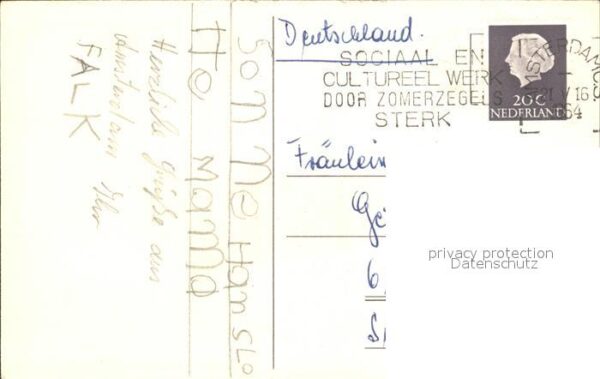 Herzliche Grüße aus
Amsterdam Ihr
FALK
SON NE HAM SLO
TTO MAMMA
Deutschland.
SOCIAAL EN
CULTUREEL WERK
DOOR ZOMERZEGELS
STERK
AMSTERDAM C.S.
21 V 16
1964
20 C
NEDERLAND
Fräulein
6
privacy protection
Datenschutz